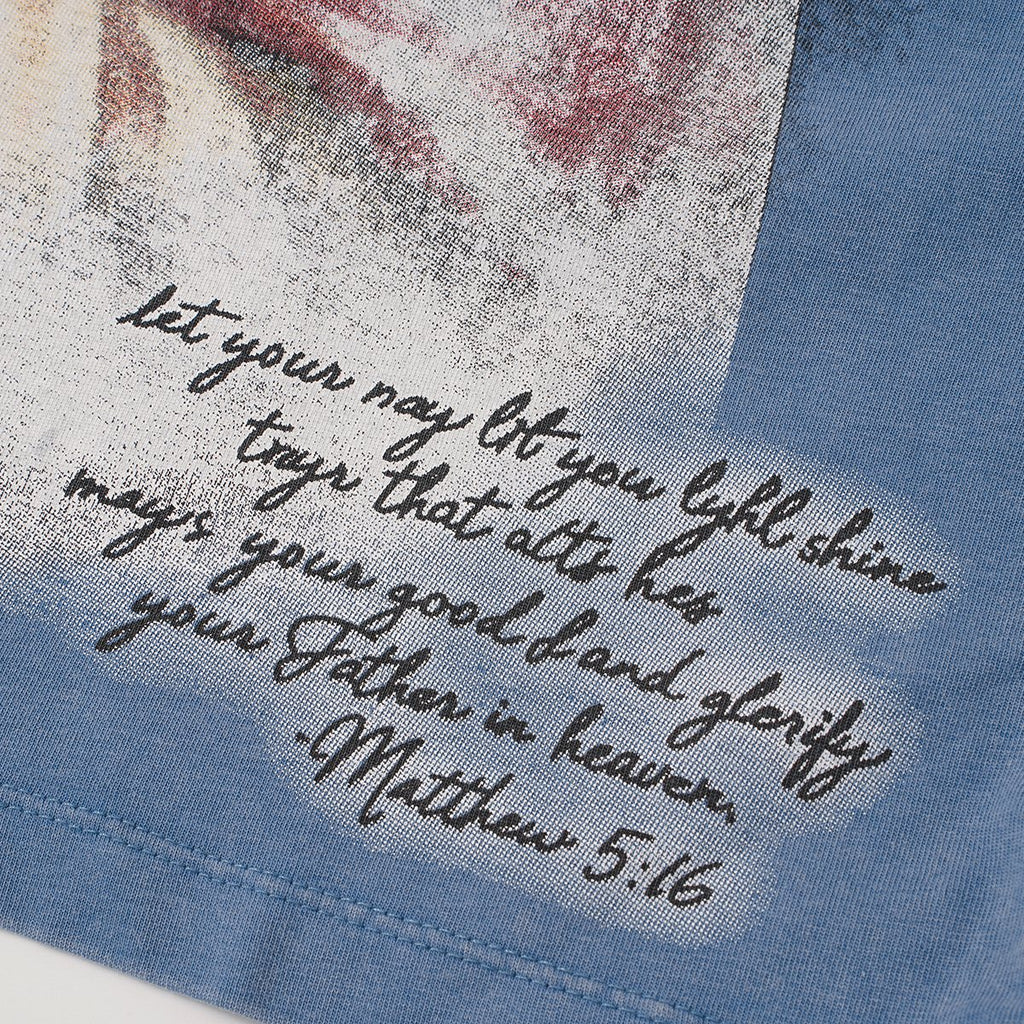 let your may lot you lyhl shine
trayr that atte hes
mays your good d and glerify
your Father in heaven,
-Matthew 5:16